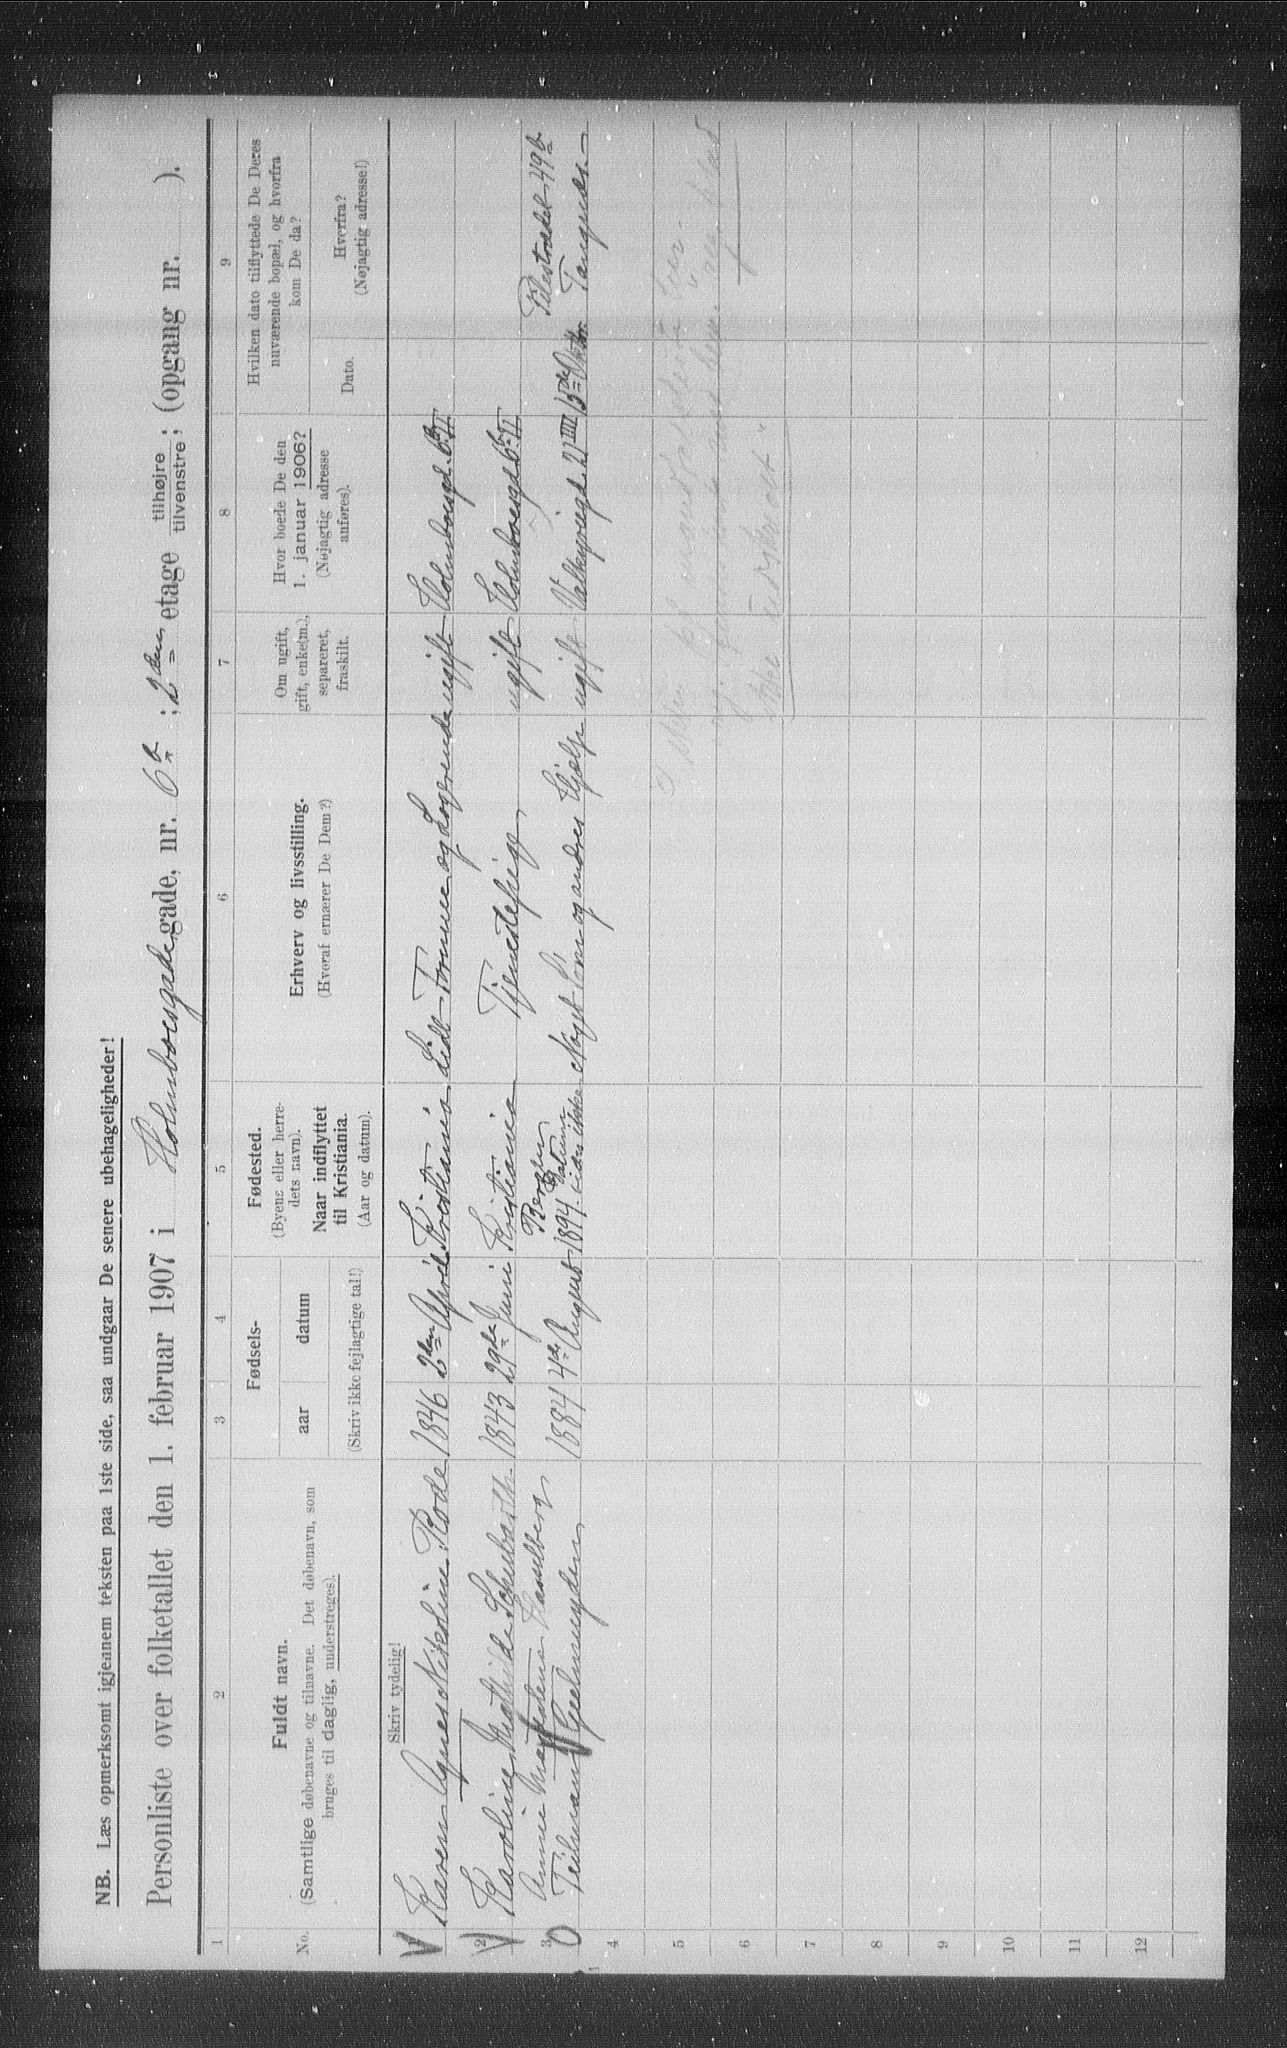 NB. Læs opmerksomt igjennem teksten paa 1ste side, saa undgaar De senere ubehageligheder!
Personliste over folketallet den 1. februar 1907 i Holmboesgade gade, nr. 6b ; 2den etage tilhøjre / tilvenstre ; (opgang nr. ).
1 2 3 4 5 6 7 8 9
No.
Fuldt navn.
(Samtlige døbenavne og tilnavne. Det døbenavn, som
bruges til daglig, understreges).
Fødsels-
aar
datum
(Skriv ikke fejlagtige tal!)
Fødested.
(Byens eller herre-
dets navn).
Naar indflyttet
til Kristiania.
(Aar og datum).
Erhverv og livsstilling.
(Hvoraf ernærer De Dem?)
Om ugift,
gift, enke(m.),
separeret,
fraskilt.
Hvor boede De den
1. januar 1906?
(Nøjagtig adresse
anføres).
Hvilken dato tilflyttede De Deres
nuværende bopæl, og hvorfra
kom De da?
Dato.
Hvorfra?
(Nøjagtig adresse!)
Skriv tydelig!
V 1 Karen Agnes Nikoline Rode 1846 2den April Kristiania Lidt Formue og Logerende ugift Holmboesgd. 6b II
V 2 Karoline Mathilde Schubarth 1843 29de Juni Kristiania Tjenestepige ugift Holmboesgd 6b II
Anne Hasselberg Bergen Pilestrædet 49b
O 3 Geelmuyden 1884 4de August 1894 Datum vides ikke Noget Søm og andres Hjælp ugift Valkyriegd. 21 III 15de Oktbr.
4
5
6
7
8
9
10
11
12